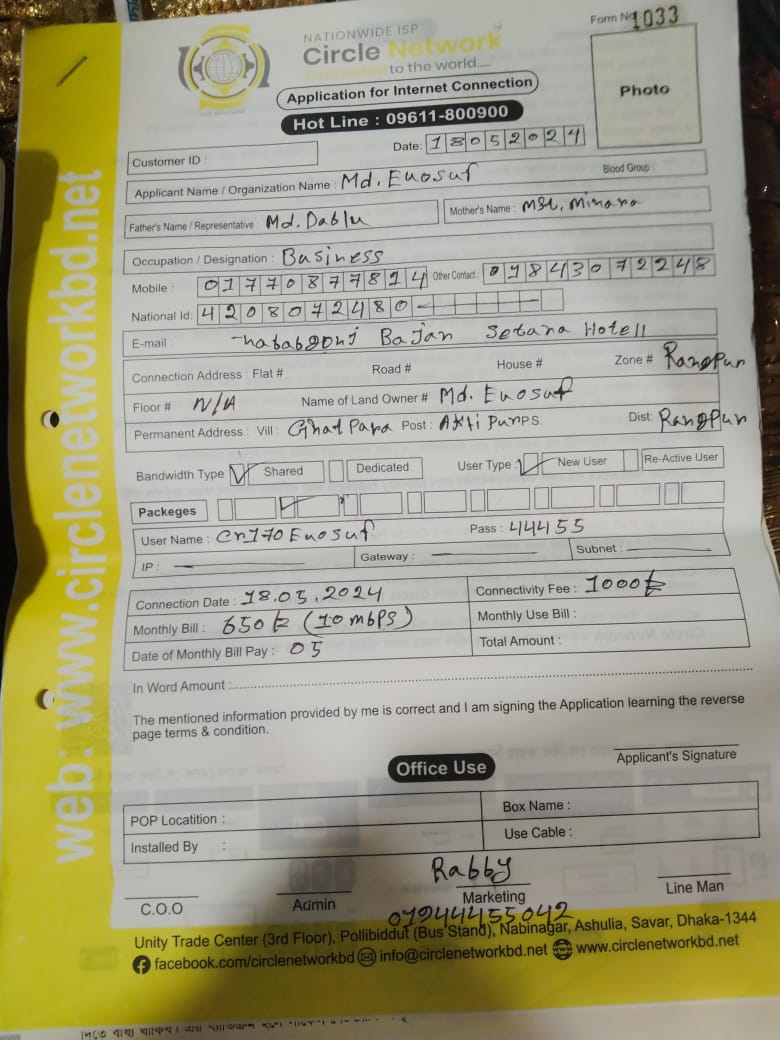 Form No 1033
NATIONWIDE ISP
Circle Network
Connected to the world.....
Application for Internet Connection
Hot Line : 09611-800900
Photo
Date: 18052024
Customer ID :
Applicant Name / Organization Name : Md. Euosuf Blood Group :
Father's Name / Representative : Md. Dablu Mother's Name : Mst. Minara
Occupation / Designation : Business
Mobile : 01770877814 Other Contact : 01843072248
National Id: 4208072480
E-mail : nababgonj Bajar Setara Hotell
Connection Address : Flat # Road # House # Zone # Rangpur
Floor # N/A Name of Land Owner # Md. Euosuf
Permanent Address : Vill : Ghat Para Post : P.S. Dist: Rangpur
Bandwidth Type Shared Dedicated User Type : New User Re-Active User
Packeges
User Name : Cn170Euosuf Pass : 44455
IP : Gateway : Subnet :
Connection Date : 18.05.2024 Connectivity Fee : 1000৳
Monthly Bill : 650৳ (10mbps) Monthly Use Bill :
Date of Monthly Bill Pay : 05 Total Amount :
In Word Amount :
The mentioned information provided by me is correct and I am signing the Application learning the reverse
page terms & condition.
Applicant's Signature
Office Use
POP Locatition : Box Name :
Installed By : Use Cable :
Rabby
C.O.O Admin Marketing Line Man
01944455042
Unity Trade Center (3rd Floor), Pollibiddut (Bus Stand), Nabinagar, Ashulia, Savar, Dhaka-1344
facebook.com/circlenetworkbd info@circlenetworkbd.net www.circlenetworkbd.net
web: www.circlenetworkbd.net